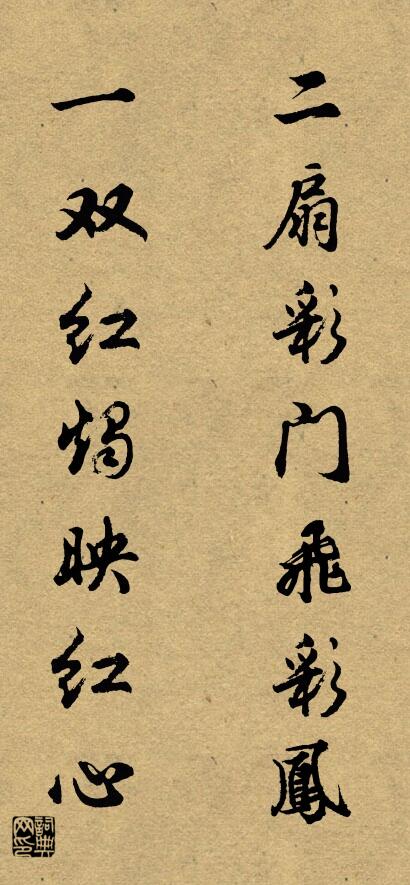 二扇彩门飞彩鳳
一双红燭映红心
詞典网印